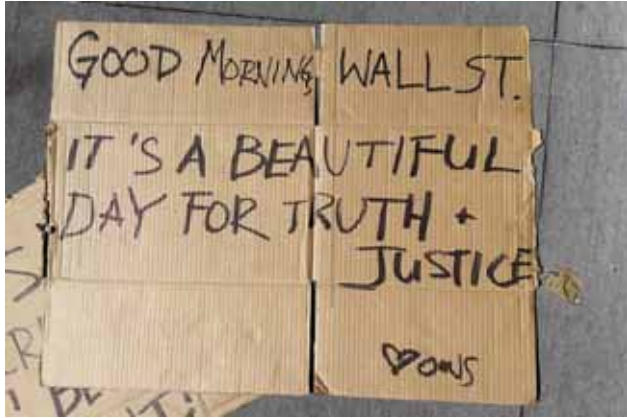 GOOD MORNING, WALL ST.
IT'S A BEAUTIFUL
DAY FOR TRUTH +
JUSTICE
♡ OWS